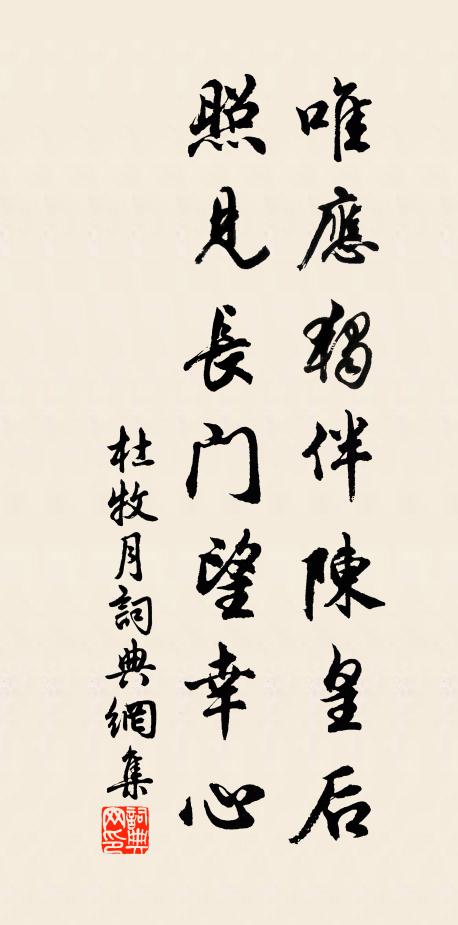 唯應獨伴陳皇后
照見長門望幸心
杜牧月詞典網集
詞典网印